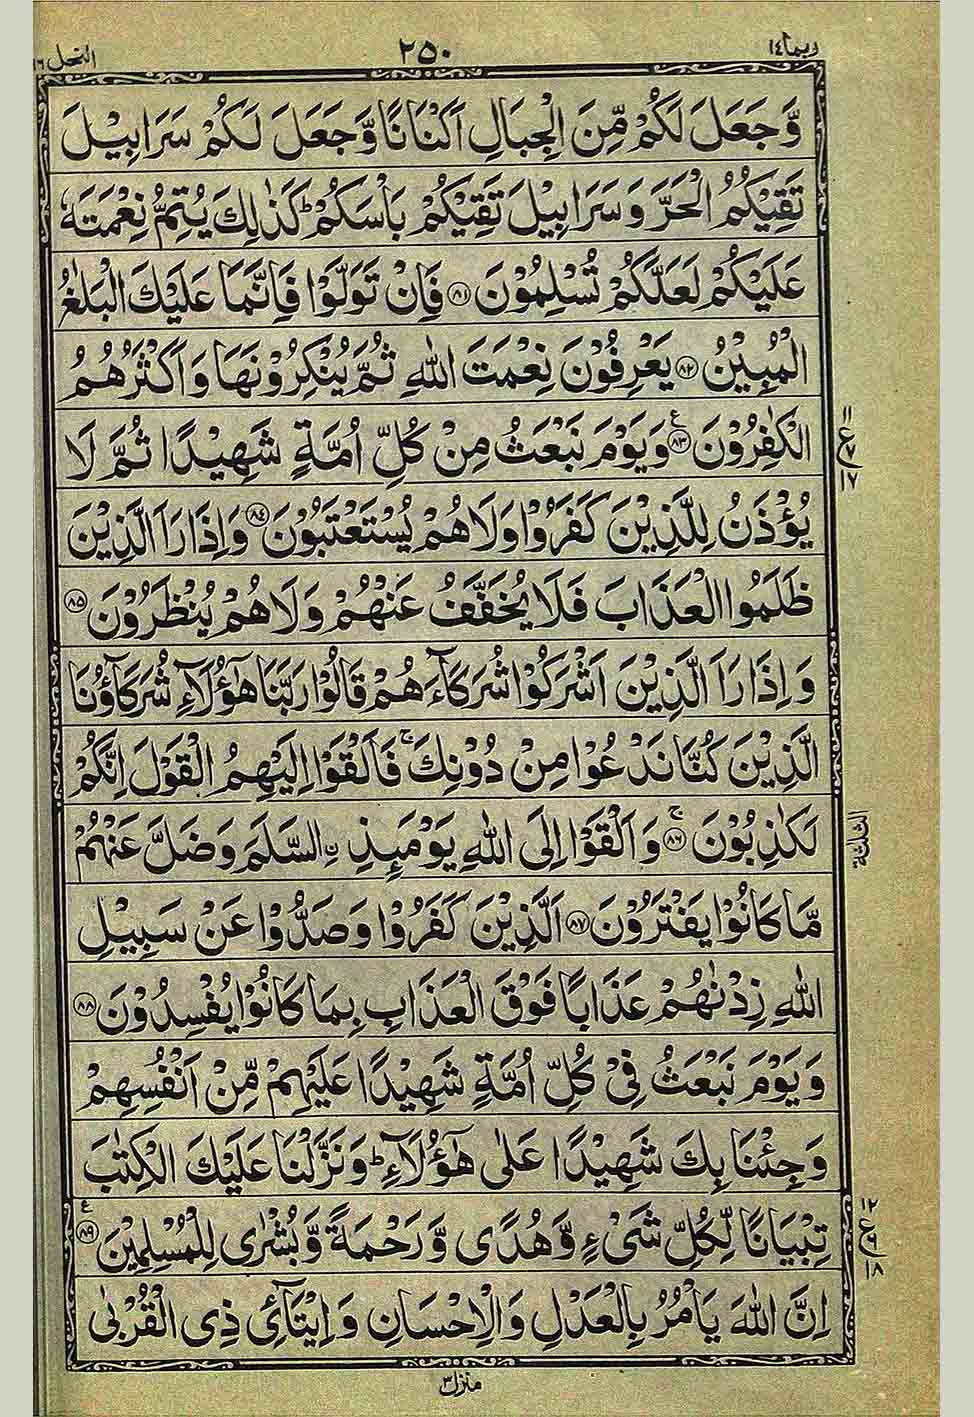 ربما ١٤
٢٥٠
النحل ١٦
وَّجَعَلَ لَكُمْ مِّنَ الْجِبَالِ اَكْنَانًا وَّجَعَلَ لَكُمْ سَرَابِيْلَ
تَقِيْكُمُ الْحَرَّ وَسَرَابِيْلَ تَقِيْكُمْ بَاْسَكُمْ ؕ كَذٰلِكَ يُتِمُّ نِعْمَتَهٗ
عَلَيْكُمْ لَعَلَّكُمْ تُسْلِمُوْنَ ﴿٨١﴾ فَاِنْ تَوَلَّوْا فَاِنَّمَا عَلَيْكَ الْبَلٰغُ
الْمُبِيْنُ ﴿٨٢﴾ يَعْرِفُوْنَ نِعْمَتَ اللّٰهِ ثُمَّ يُنْكِرُوْنَهَا وَاَكْثَرُهُمُ
الْكٰفِرُوْنَ ﴿٨٣﴾ ع وَيَوْمَ نَبْعَثُ مِنْ كُلِّ اُمَّةٍ شَهِيْدًا ثُمَّ لَا
١١
ع
٧
١٧
يُؤْذَنُ لِلَّذِيْنَ كَفَرُوْا وَلَا هُمْ يُسْتَعْتَبُوْنَ ﴿٨٤﴾ وَاِذَا رَاَ الَّذِيْنَ
ظَلَمُوا الْعَذَابَ فَلَا يُخَفَّفُ عَنْهُمْ وَلَا هُمْ يُنْظَرُوْنَ ﴿٨٥﴾
وَاِذَا رَاَ الَّذِيْنَ اَشْرَكُوْا شُرَكَآءَهُمْ قَالُوْا رَبَّنَا هٰٓؤُلَآءِ شُرَكَآؤُنَا
الَّذِيْنَ كُنَّا نَدْعُوْا مِنْ دُوْنِكَ ۚ فَاَلْقَوْا اِلَيْهِمُ الْقَوْلَ اِنَّكُمْ
لَكٰذِبُوْنَ ﴿٨٦﴾ ۚ وَاَلْقَوْا اِلَى اللّٰهِ يَوْمَئِذِ ِۨالسَّلَمَ وَضَلَّ عَنْهُمْ
الثلثة
مَّا كَانُوْا يَفْتَرُوْنَ ﴿٨٧﴾ اَلَّذِيْنَ كَفَرُوْا وَصَدُّوْا عَنْ سَبِيْلِ
اللّٰهِ زِدْنٰهُمْ عَذَابًا فَوْقَ الْعَذَابِ بِمَا كَانُوْا يُفْسِدُوْنَ ﴿٨٨﴾
وَيَوْمَ نَبْعَثُ فِيْ كُلِّ اُمَّةٍ شَهِيْدًا عَلَيْهِمْ مِّنْ اَنْفُسِهِمْ
وَجِئْنَا بِكَ شَهِيْدًا عَلٰى هٰٓؤُلَآءِ ؕ وَنَزَّلْنَا عَلَيْكَ الْكِتٰبَ
تِبْيَانًا لِّكُلِّ شَيْءٍ وَّهُدًى وَّرَحْمَةً وَّبُشْرٰى لِلْمُسْلِمِيْنَ ﴿٨٩﴾ ع
١٢
ع
٦
١٨
اِنَّ اللّٰهَ يَاْمُرُ بِالْعَدْلِ وَالْاِحْسَانِ وَاِيْتَآئِ ذِي الْقُرْبٰى
منزل ٣